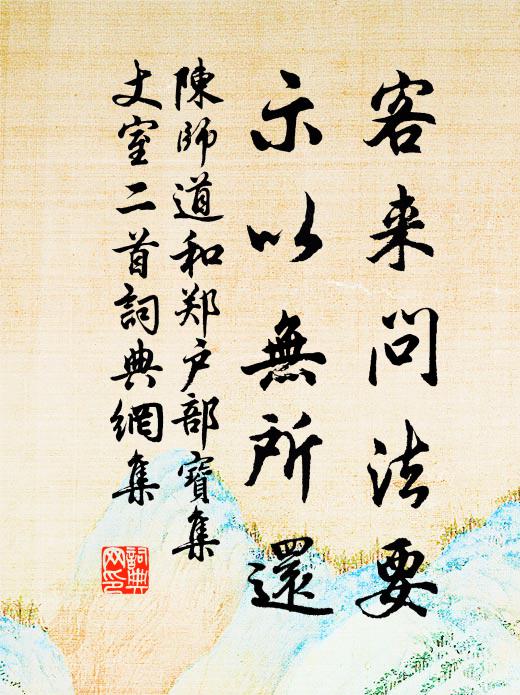 客来问法要
示以無所還
陳師道和郑户部寶集
丈室二首詞典網集
詞典
网印